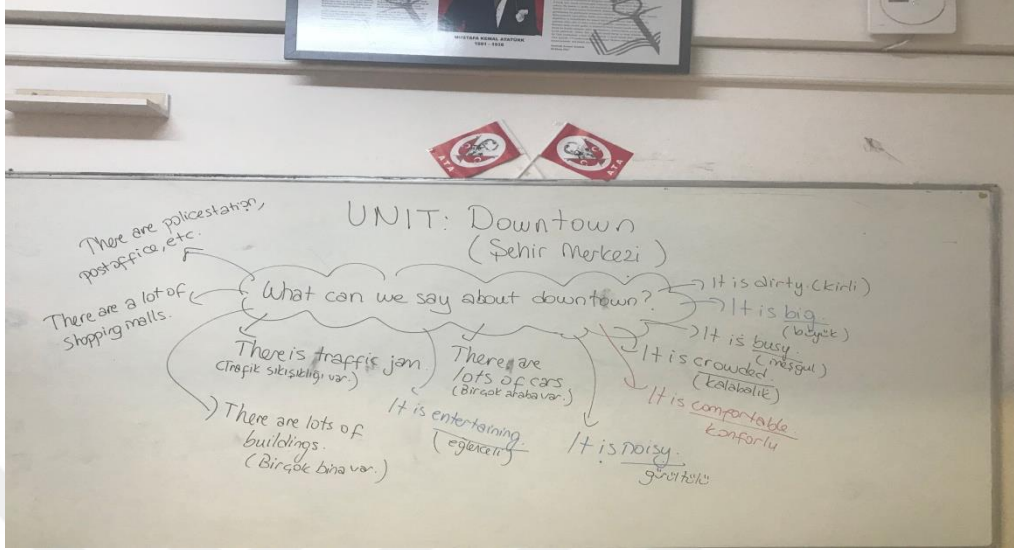 MUSTAFA KEMAL ATATÜRK
1881 - 1938
ATA
ATA
UNIT: Downtown
(Şehir Merkezi)
What can we say about downtown?
There are policestation,
postoffice, etc.
There are a lot of
shopping malls.
There is traffic jam
(Trafik sıkışıklığı var.)
There are lots of
buildings.
(Birçok bina var.)
There are
lots of cars
(Birçok araba var.)
It is entertaining.
(eğlenceli)
It is noisy.
gürültülü
It is comfortable
konforlu
It is crowded.
(kalabalık)
It is busy
(meşgul)
It is big.
(büyük)
It is dirty. (kirli)